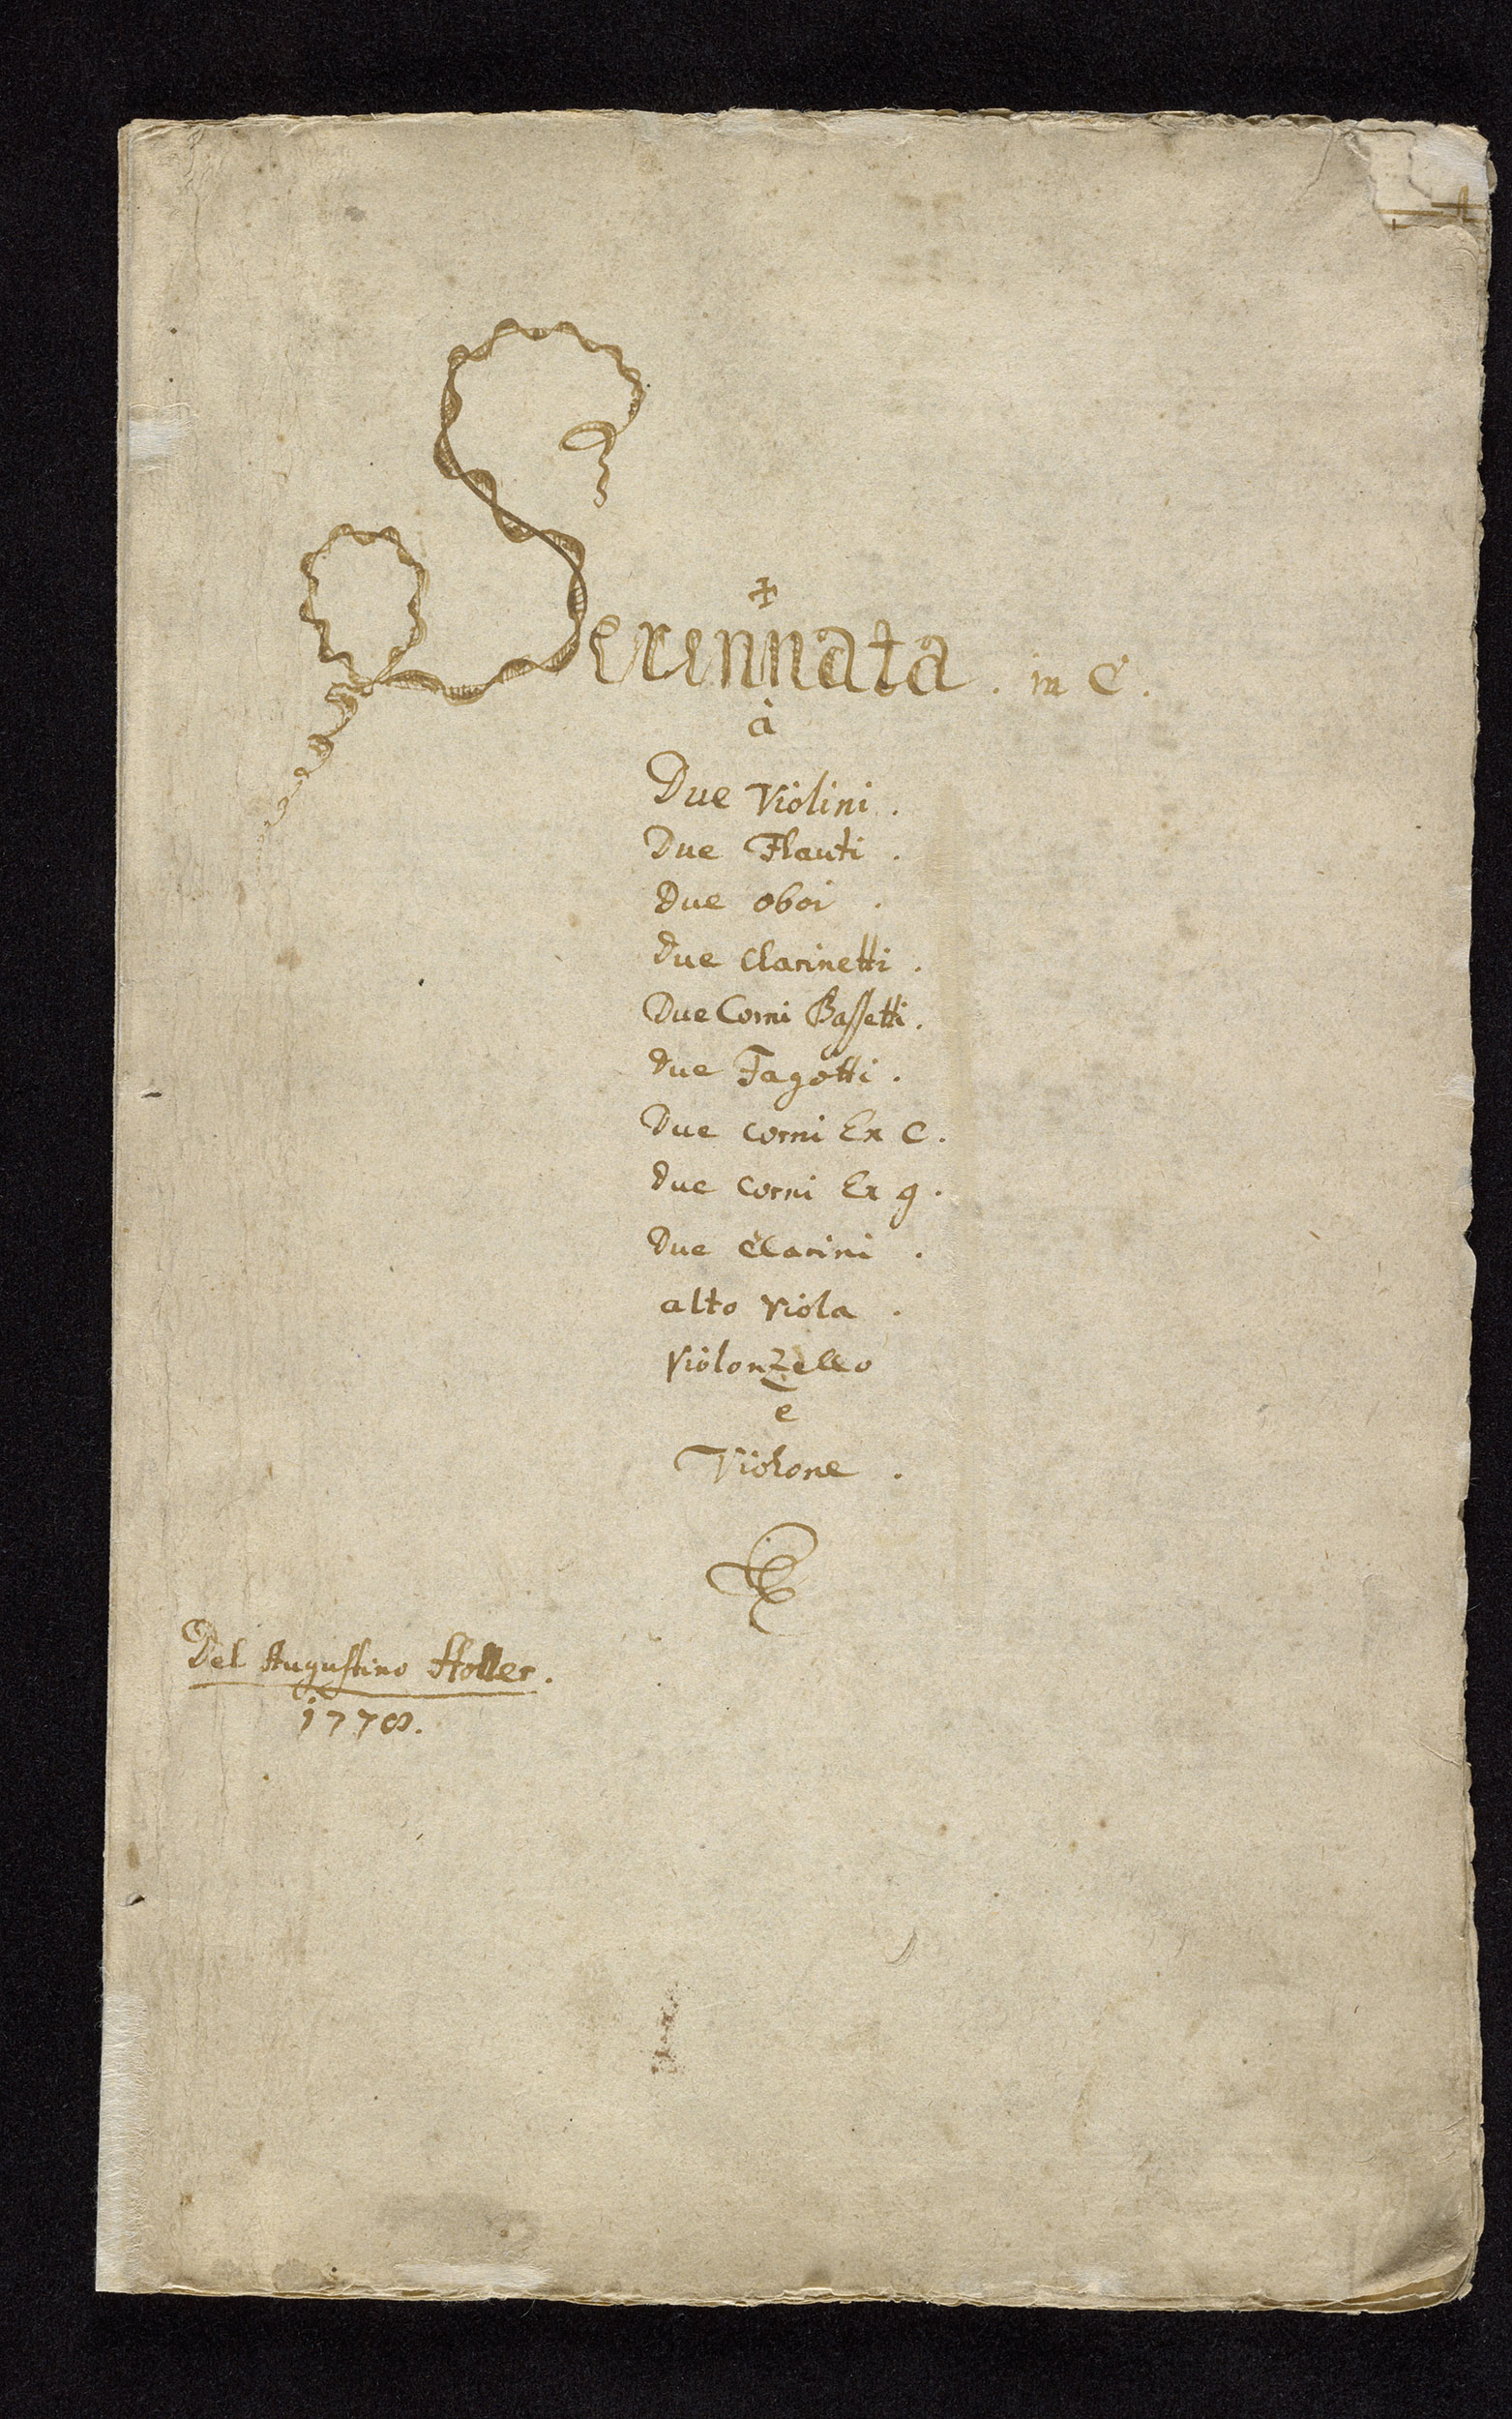 Serennata. in C.
à
Due Violini.
Due Flauti.
Due oboi.
Due Clarinetti.
Due Corni Bassetti.
Due Fagotti.
Due Corni Ex C.
Due Corni Ex g.
Due Clarini.
alto Viola.
Violonzello
è
Violone.
Del Augustino Holler.
1778.